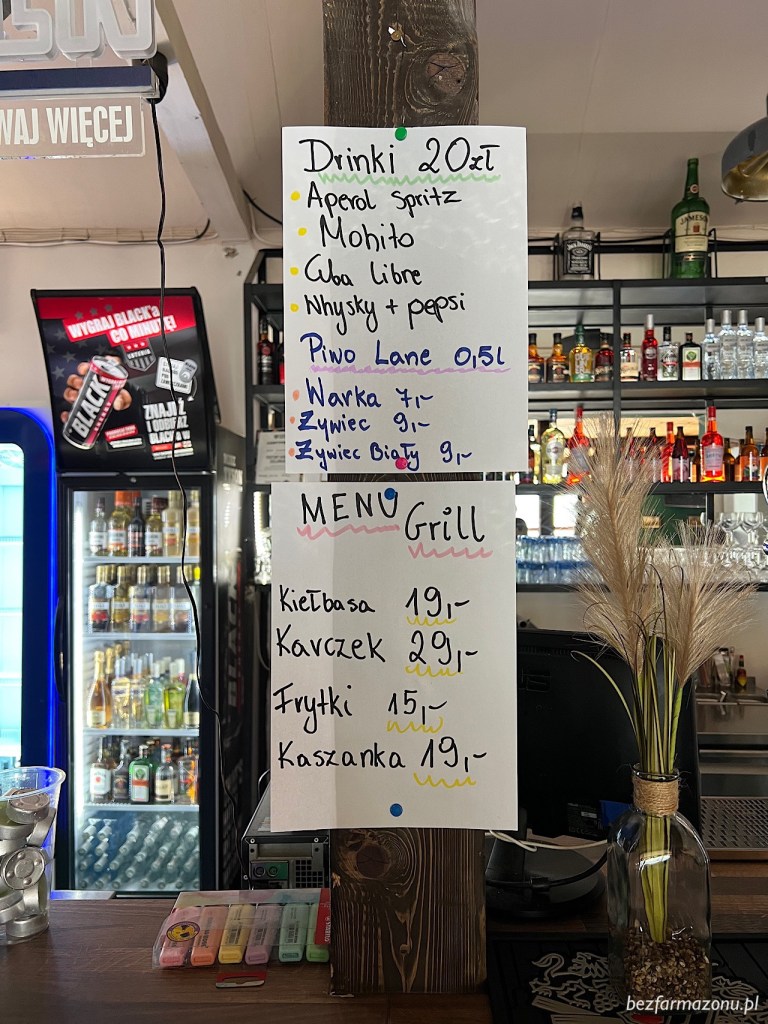 WAJ WIĘCEJ
Drinki 20zł
Aperol Spritz
Mohito
Cuba Libre
Whysky + pepsi
Piwo Lane 0,5l
Warka 7,-
Żywiec 9,-
Żywiec Biały 9,-
MENU Grill
Kiełbasa 19,-
Karczek 29,-
Frytki 15,-
Kaszanka 19,-
WYGRAJ BLACK'a
CO MINUTĘ!
LOTERIA
BLACK
ZNAJDŹ
JAMESON
bezfarmazonu.pl